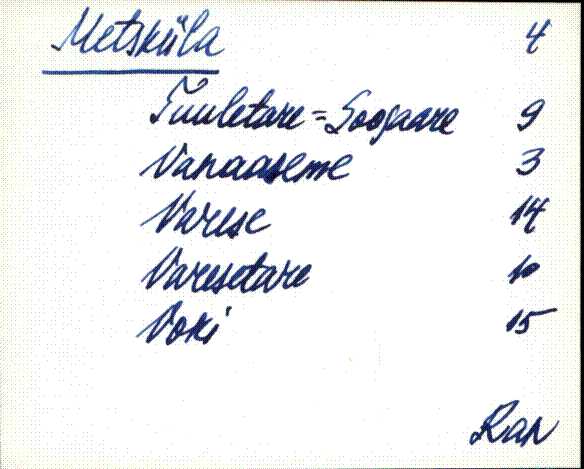 Metsküla 4
Tuuletare = Soosaare 9
Vanaaseme 3
Varese 14
Varesetare 10
Voki 15
Ran